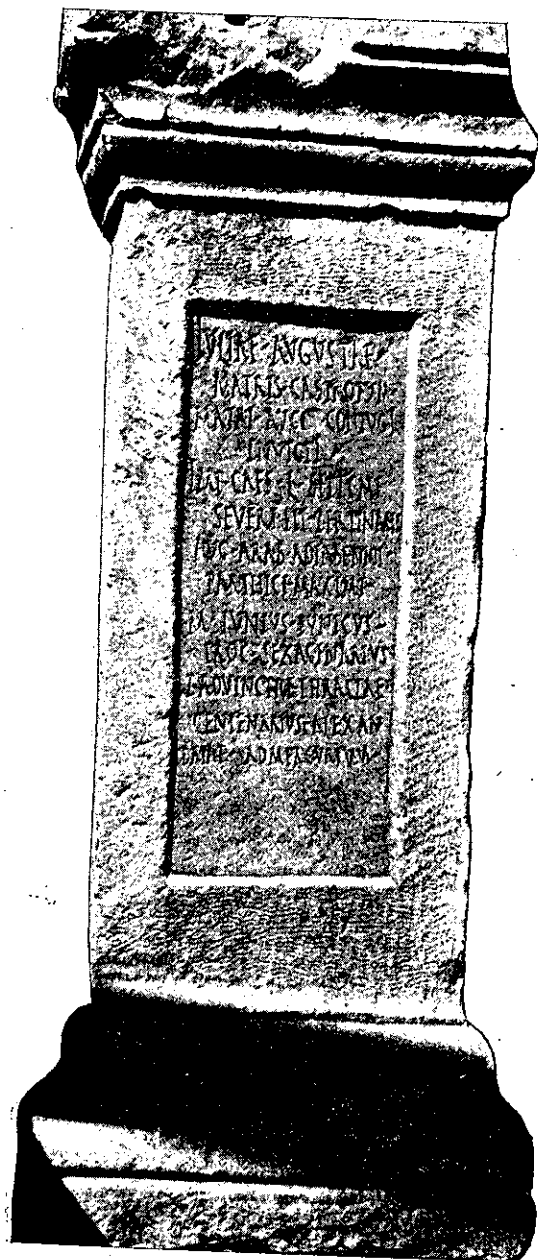 IVLIAE · AVGVSTAE
MATRI · CASTRORVM
MATRI · AVGG · CONIVGI
INVICTI
IMP · CAES · L · SEPTIMI
SEVERI · PII · PERTINAC
AVG · ARAB · ADIABENI
PARTHICI · MAXIMI
M · IVNIVS · PVNICVS
PROC · SEXAGENARIVS
PROVINCIAE · THRACIAE
CENTENARIVS · ALEXAN
AD